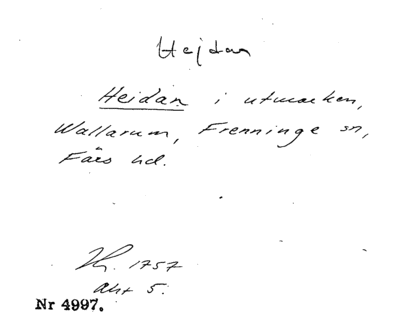 Hejdan
Heidan i utmarken,
Wallarum, Frenninge sn,
Färs hd.
1757
akt 5.
Nr 4997.